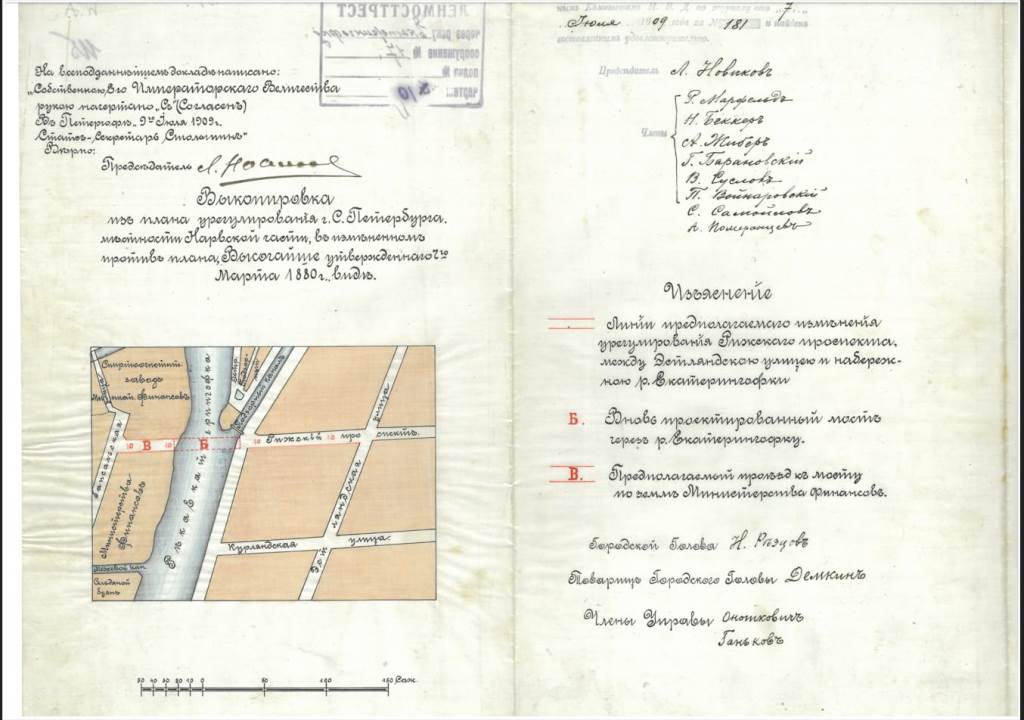 На всеподданнѣйшемъ докладѣ написано:
„Собственною, Его Императорскаго Величества
рукою начертано „С" (Согласен)
Въ Петергофѣ „ 9го Іюля 1909г.
Статсъ-Секретарь Столыпинъ"
Вѣрно:
Предсѣдатель
Выкопировка
изъ плана урегулированія г. С. Петербурга.
мѣстности Нарвской части, въ измѣненномъ
противъ плана, Высочайше утвержденнаго 7го
Марта 1880г., видѣ.
ЛЕНМОСТТРЕСТ
через реку
сооружение №
Спиртоочистный
заводъ
Финансовъ
Рѣка Екатерингофка
Рижскій проспектъ.
В
Б
10
10
10
10
Министерства
Финансовъ
Курляндская улица.
Эстляндская улица
Сельдяной
буянъ
50 40 30 20 10 0 50 100 150 Саж.
Іюля 1909 года за № 181 и найдена
Предсѣдатель Л. Новиковъ
Члены
Р. Марфельдъ
Н. Беккеръ
А. Жиберъ
Г. Барановскій
В. Сусловъ
П. Войнаровскій
С. Самойловъ
А. Померанцевъ
Изъясненіе
Линіи предполагаемаго измѣненія
урегулированія Рижскаго проспекта,
между Эстляндскою улицею и набереж-
ною р. Екатерингофки
Б. Вновь проектированный мостъ
черезъ р. Екатерингофку.
В. Предполагаемый проѣздъ къ мосту
по землѣ Министерства Финансовъ.
Городской Голова Н. Рѣзцовъ
Товарищ Городского Головы Демкинъ
Члены Управы Оношковичъ
Ганьковъ